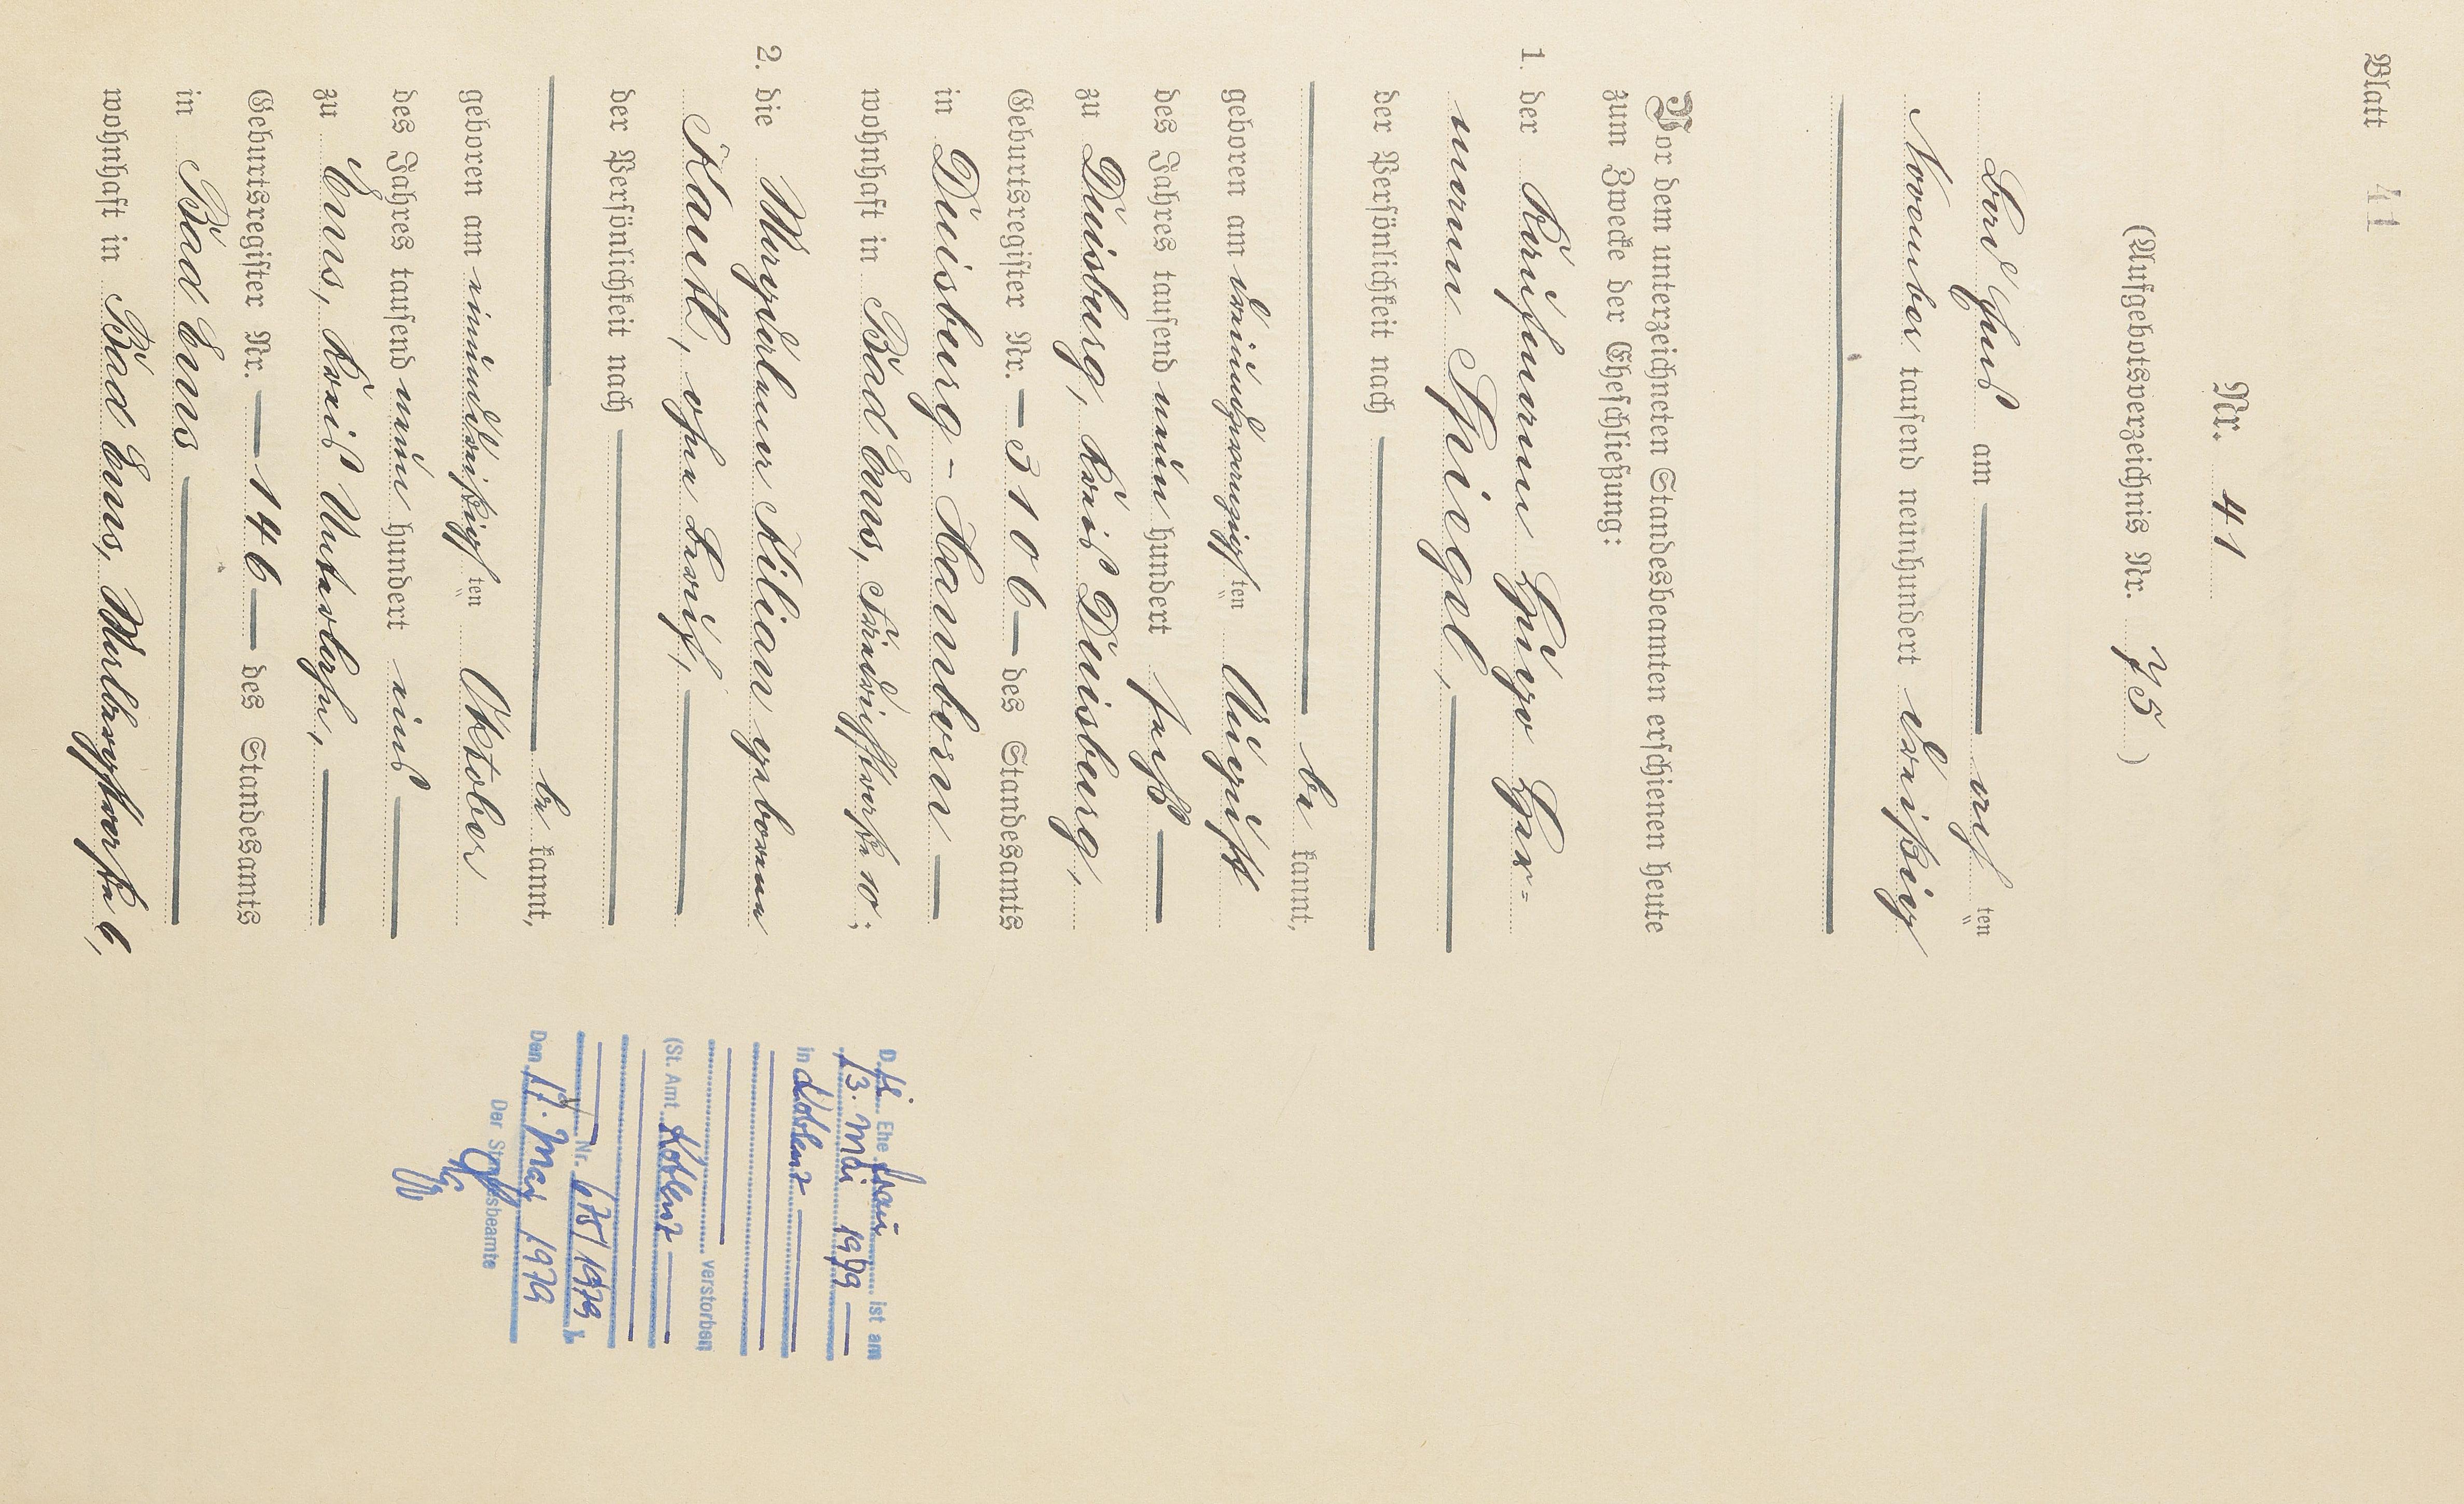 Blatt 41
Nr. 41
(Aufgebotsverzeichnis Nr. 75)
Bad Ems am — acht ten
November tausend neunhundert dreißig
Vor dem unterzeichneten Standesbeamten erschienen heute
zum Zwecke der Eheschließung:
1. der Kaufmann Hugo Her-
mann Spiegel, —
der Persönlichkeit nach —
— be kannt,
geboren am dreiundzwanzigsten August
des Jahres tausend neun hundert sechs —
zu Duisburg, Kreis Duisburg,
Geburtsregister Nr. — 3106 — des Standesamts
in Duisburg-Hamborn —
wohnhaft in Bad Ems, Friedrichstraße 10;
2. die Magdalena Kilian geborene
Knautl, ohne Beruf, —
der Persönlichkeit nach —
— be kannt,
geboren am einunddreißigsten ten Oktober
des Jahres tausend neun hundert eins —
zu Ems, Kreis Unterlahn, —
Geburtsregister Nr. — 146 — des Standesamts
in Bad Ems —
wohnhaft in Bad Ems, Marktstraße 6,
Die Ehefrau ist am
13. Mai 1979 —
in Koblenz —
verstorben
(St. Amt Koblenz —
Nr. 675/1979 ).
Den 17. Mai 1979
Der Standesbeamte